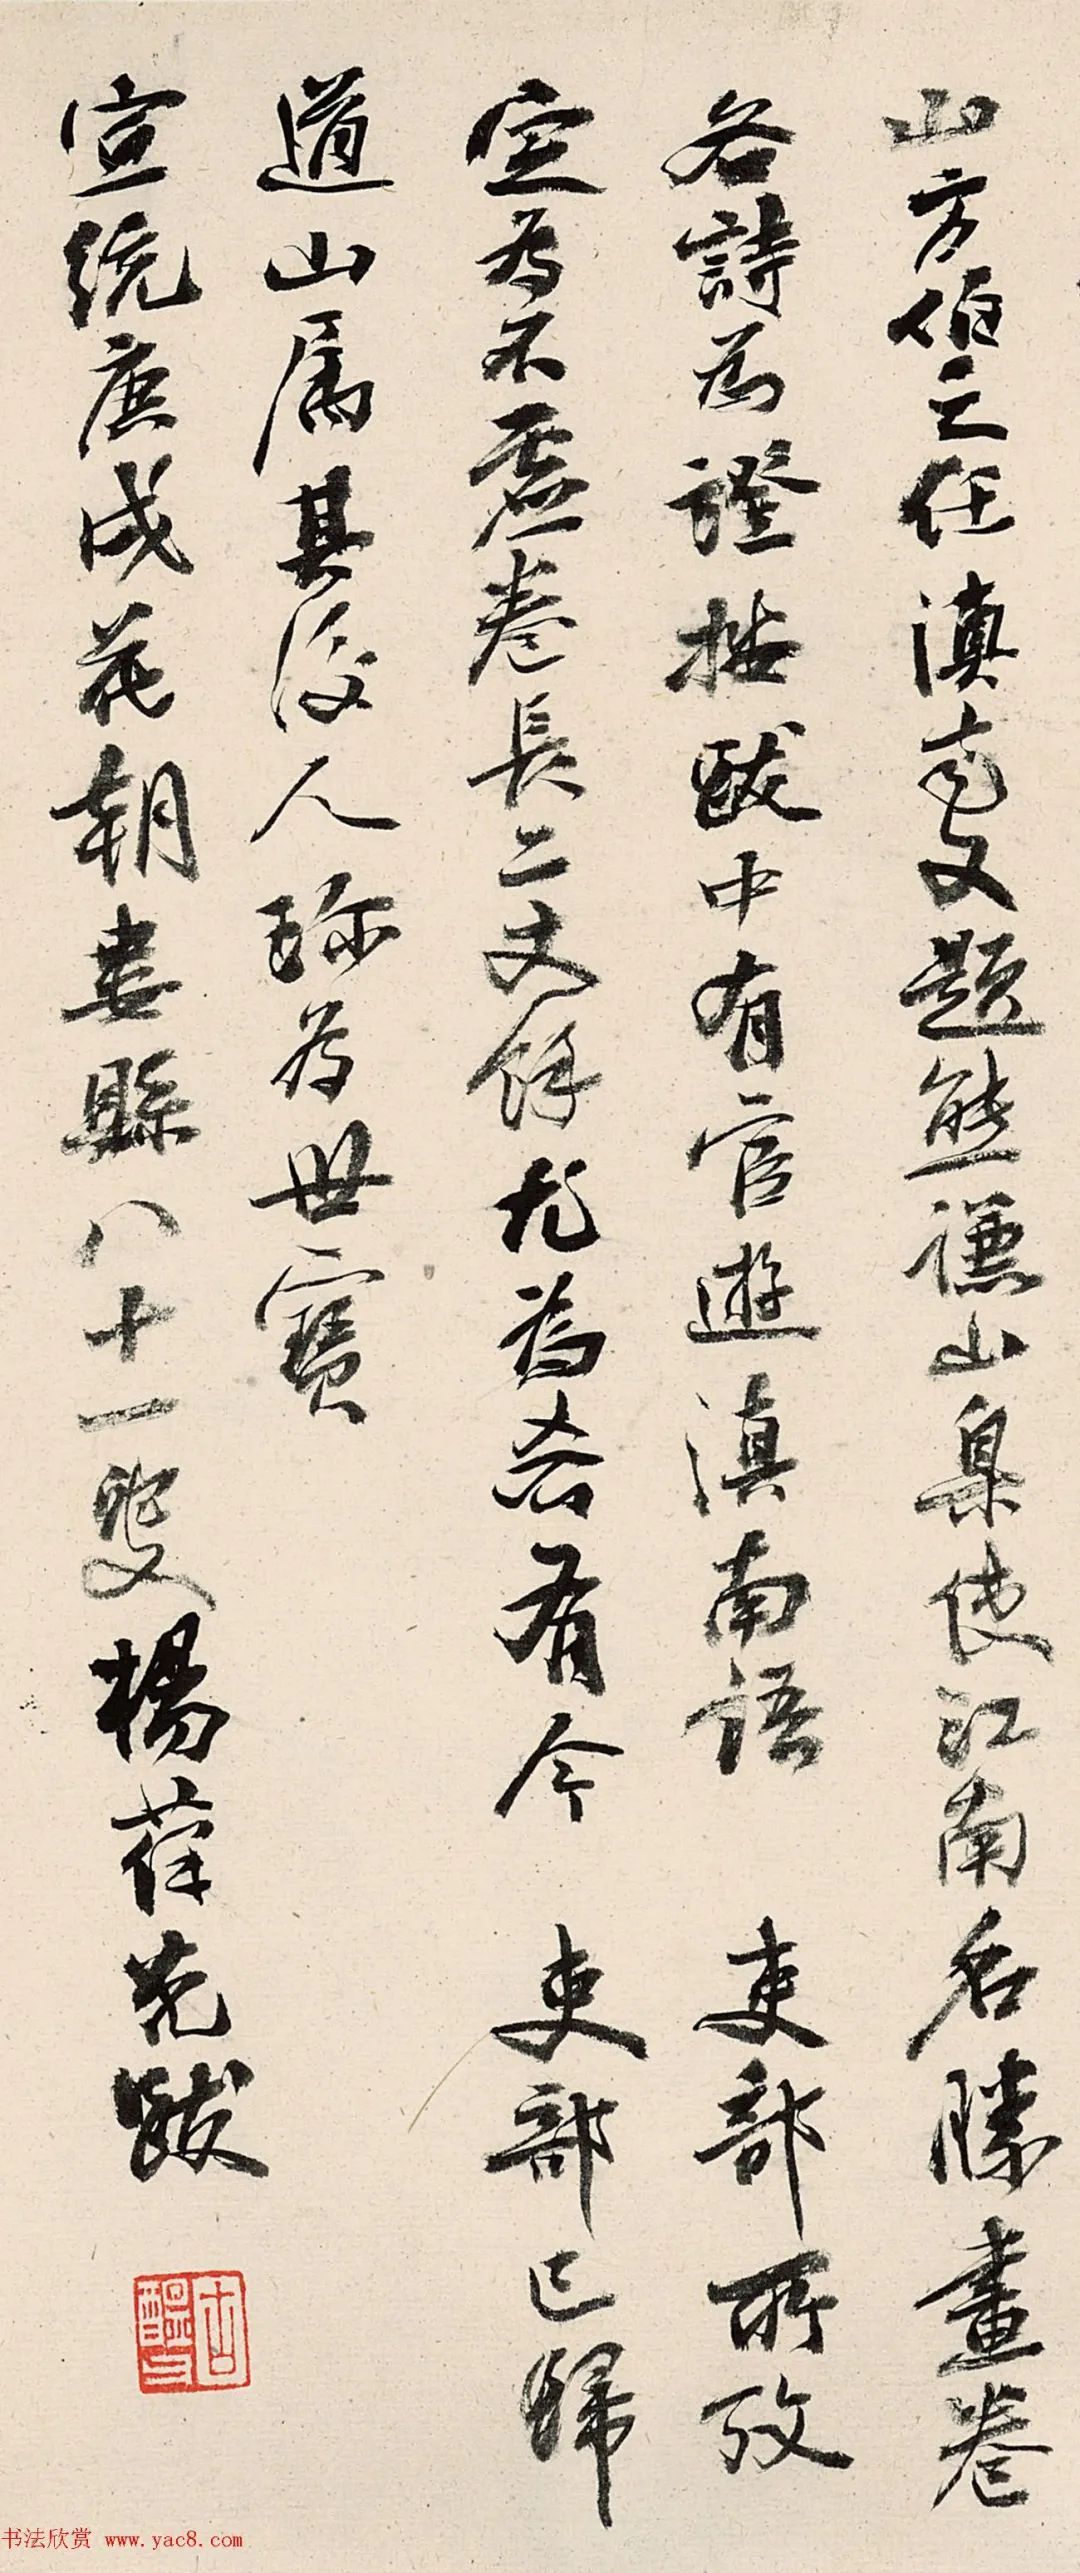 山方伯之任滇南又題熊謙山臬使江南名勝畫卷
各詩為證楷跋中有官遊滇南語　吏部所攷
定為不虛卷長二丈餘尤為希有今　吏部已歸
道山属其後人珎為世寶
宣統庚戌花朝婁縣八十一叟楊葆光跋
書法欣赏 www.yac8.com